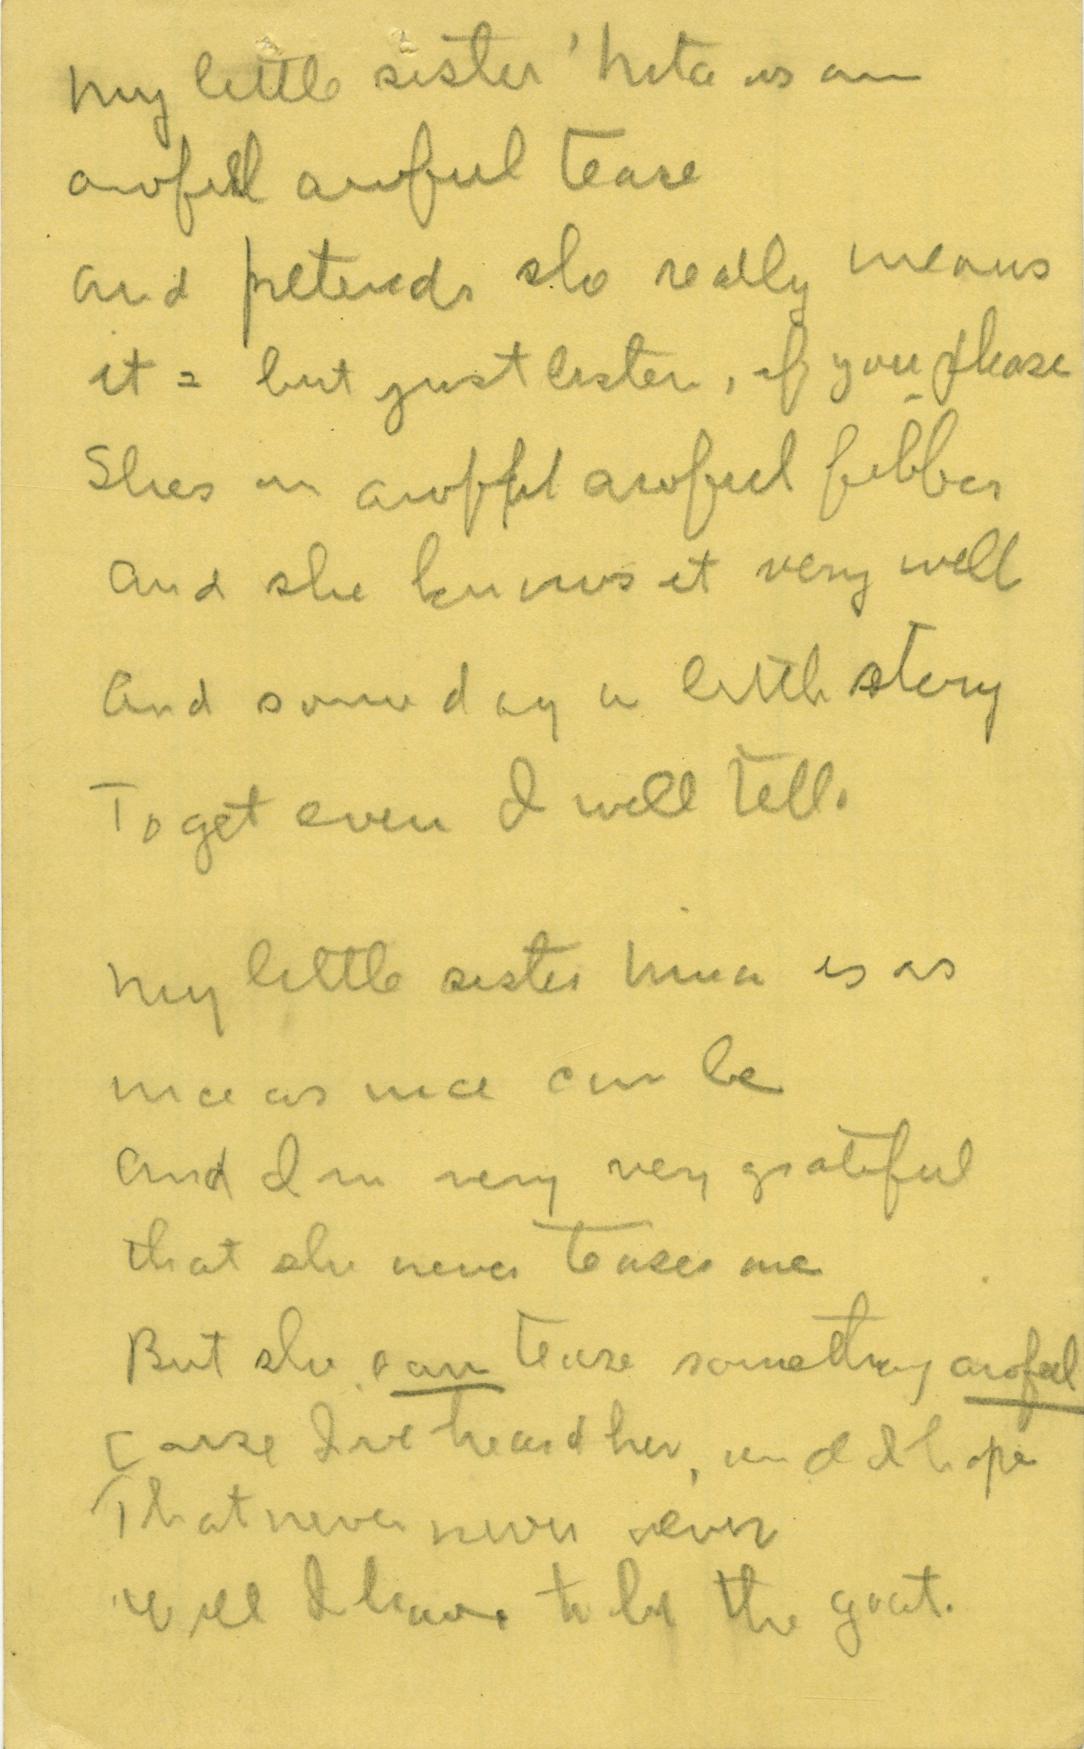 My little sister 'Nita is an
awful awful tease
and pretends she really means
it = but just listen, if you please
Shes an awful awful fibber
and she knows it very well
and some day a little story
To get even I will tell.
My little sister Nina is as
nice as nice can be
and I'm very very grateful
that she never teases me
But she can tease something awful
Cause I've heard her, and I hope
That never never ever
Will I have to be the goat.